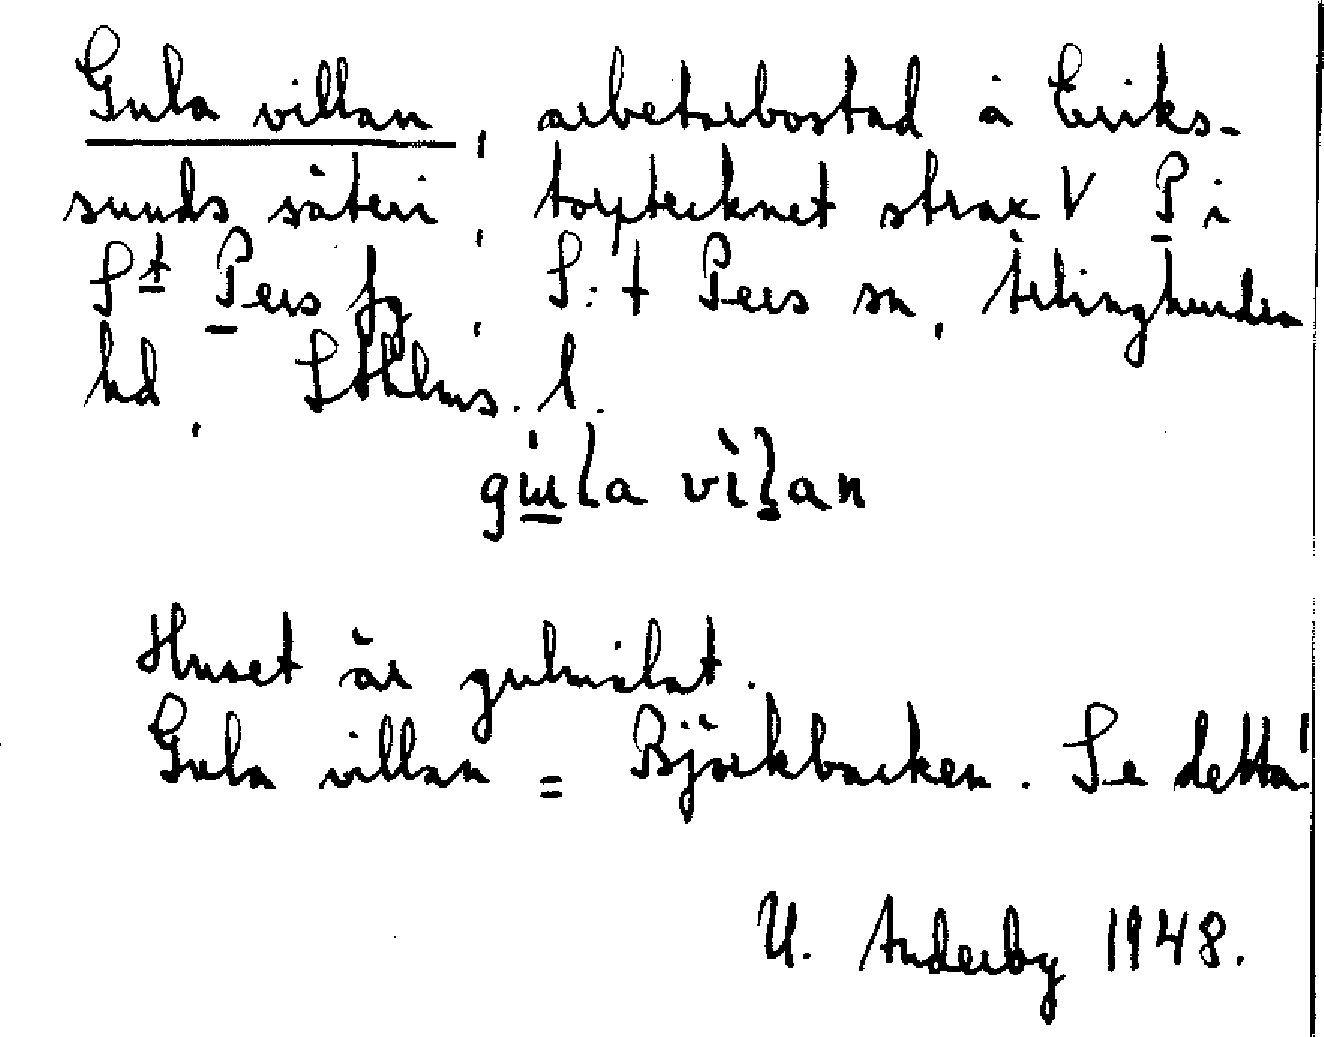 Gula villan, arbetarbostad å Eriks-
sunds säteri, torptecknet strax V P i
S:t Pers fg, S:t Pers sn, Ärlinghundra
hd, Sthlms. l.
gu̇la vìlan
Huset är gulmålat.
Gula villan = Björkbacken. Se detta!
U. Anderby 1948.